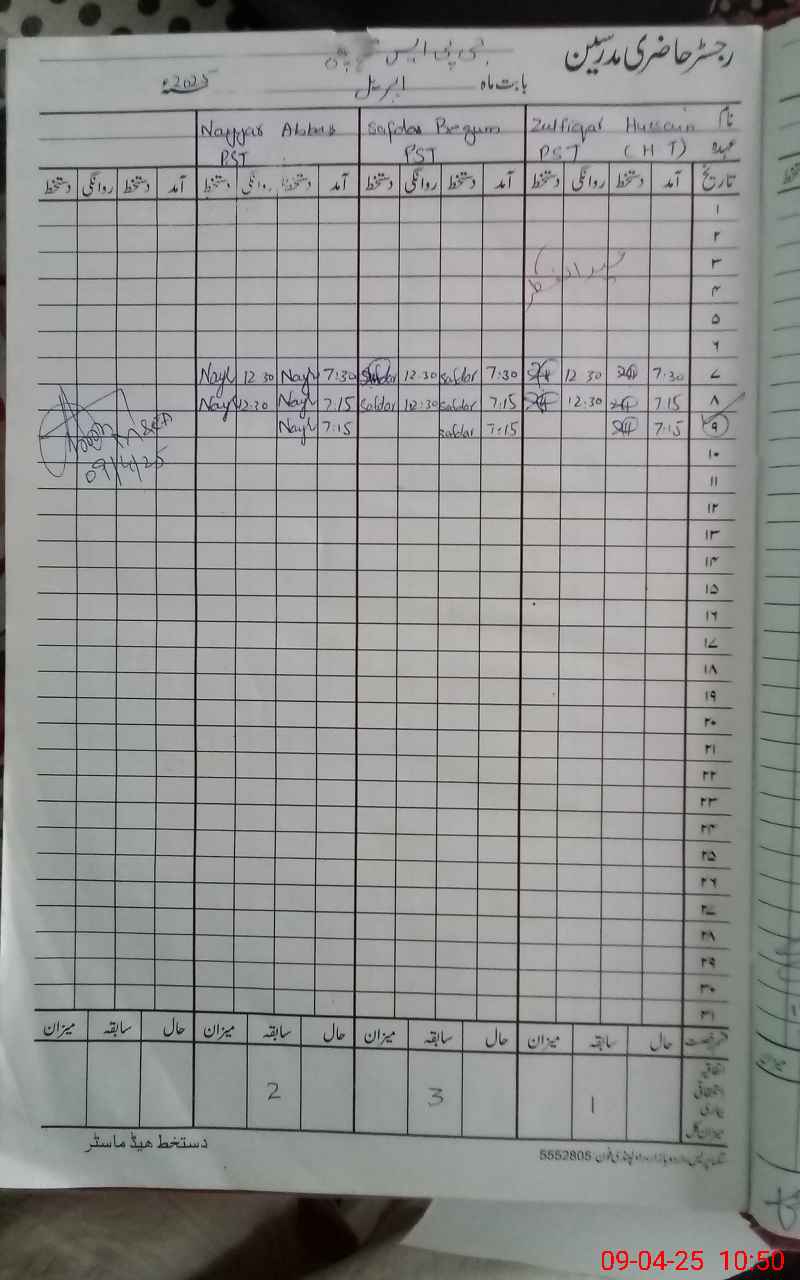 رجسٹر حاضری مدرسین
جی پی ایس
بابت ماہ اپریل 2025ء
نام Zulfiqar Hussain Safdar Begum Nayyar Abbas
عہدہ PST (HT) PST PST
تاریخ آمد دستخط روانگی دستخط آمد دستخط روانگی دستخط آمد دستخط روانگی دستخط آمد دستخط روانگی دستخط
۱
۲
۳
۴
۵
۶
۷ 7:30 12 30 7:30 Safdar 12:30 Safdar 7:30 Nayy 12 30 Nayy
۸ 7 15 12:30 7:15 Safdar 12:30 Safdar 7:15 Nayy 12:30 Nayy
۹ 7:15 7:15 Safdar 7:15 Nayy
09/4/25
۱۰
۱۱
۱۲
۱۳
۱۴
۱۵
۱۶
۱۷
۱۸
۱۹
۲۰
۲۱
۲۲
۲۳
۲۴
۲۵
۲۶
۲۷
۲۸
۲۹
۳۰
۳۱
قسم رخصت حال سابقہ میزان حال سابقہ میزان حال سابقہ میزان حال سابقہ میزان
اتفاقی
استحقاقی 1 3 2
بیماری
میزان کل
دستخط ھیڈ ماسٹر
اردو بازار، راولپنڈی فون 5552805
09-04-25 10:50